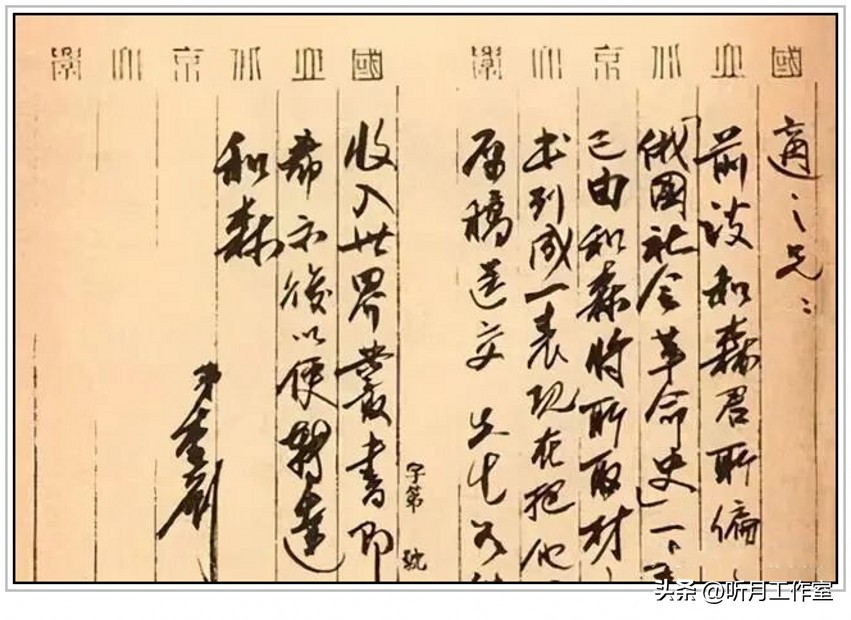 國立北京大學
國立北京大學
適之兄：
前談和森君所編之
「俄國社会革命史」一書
已由和森將所取材之
书列成一表現在把他
原稿送交 先生 如
字第 號
收入世界叢書即
希示復以便轉達
和森
弟 釗
头条 @听月工作室